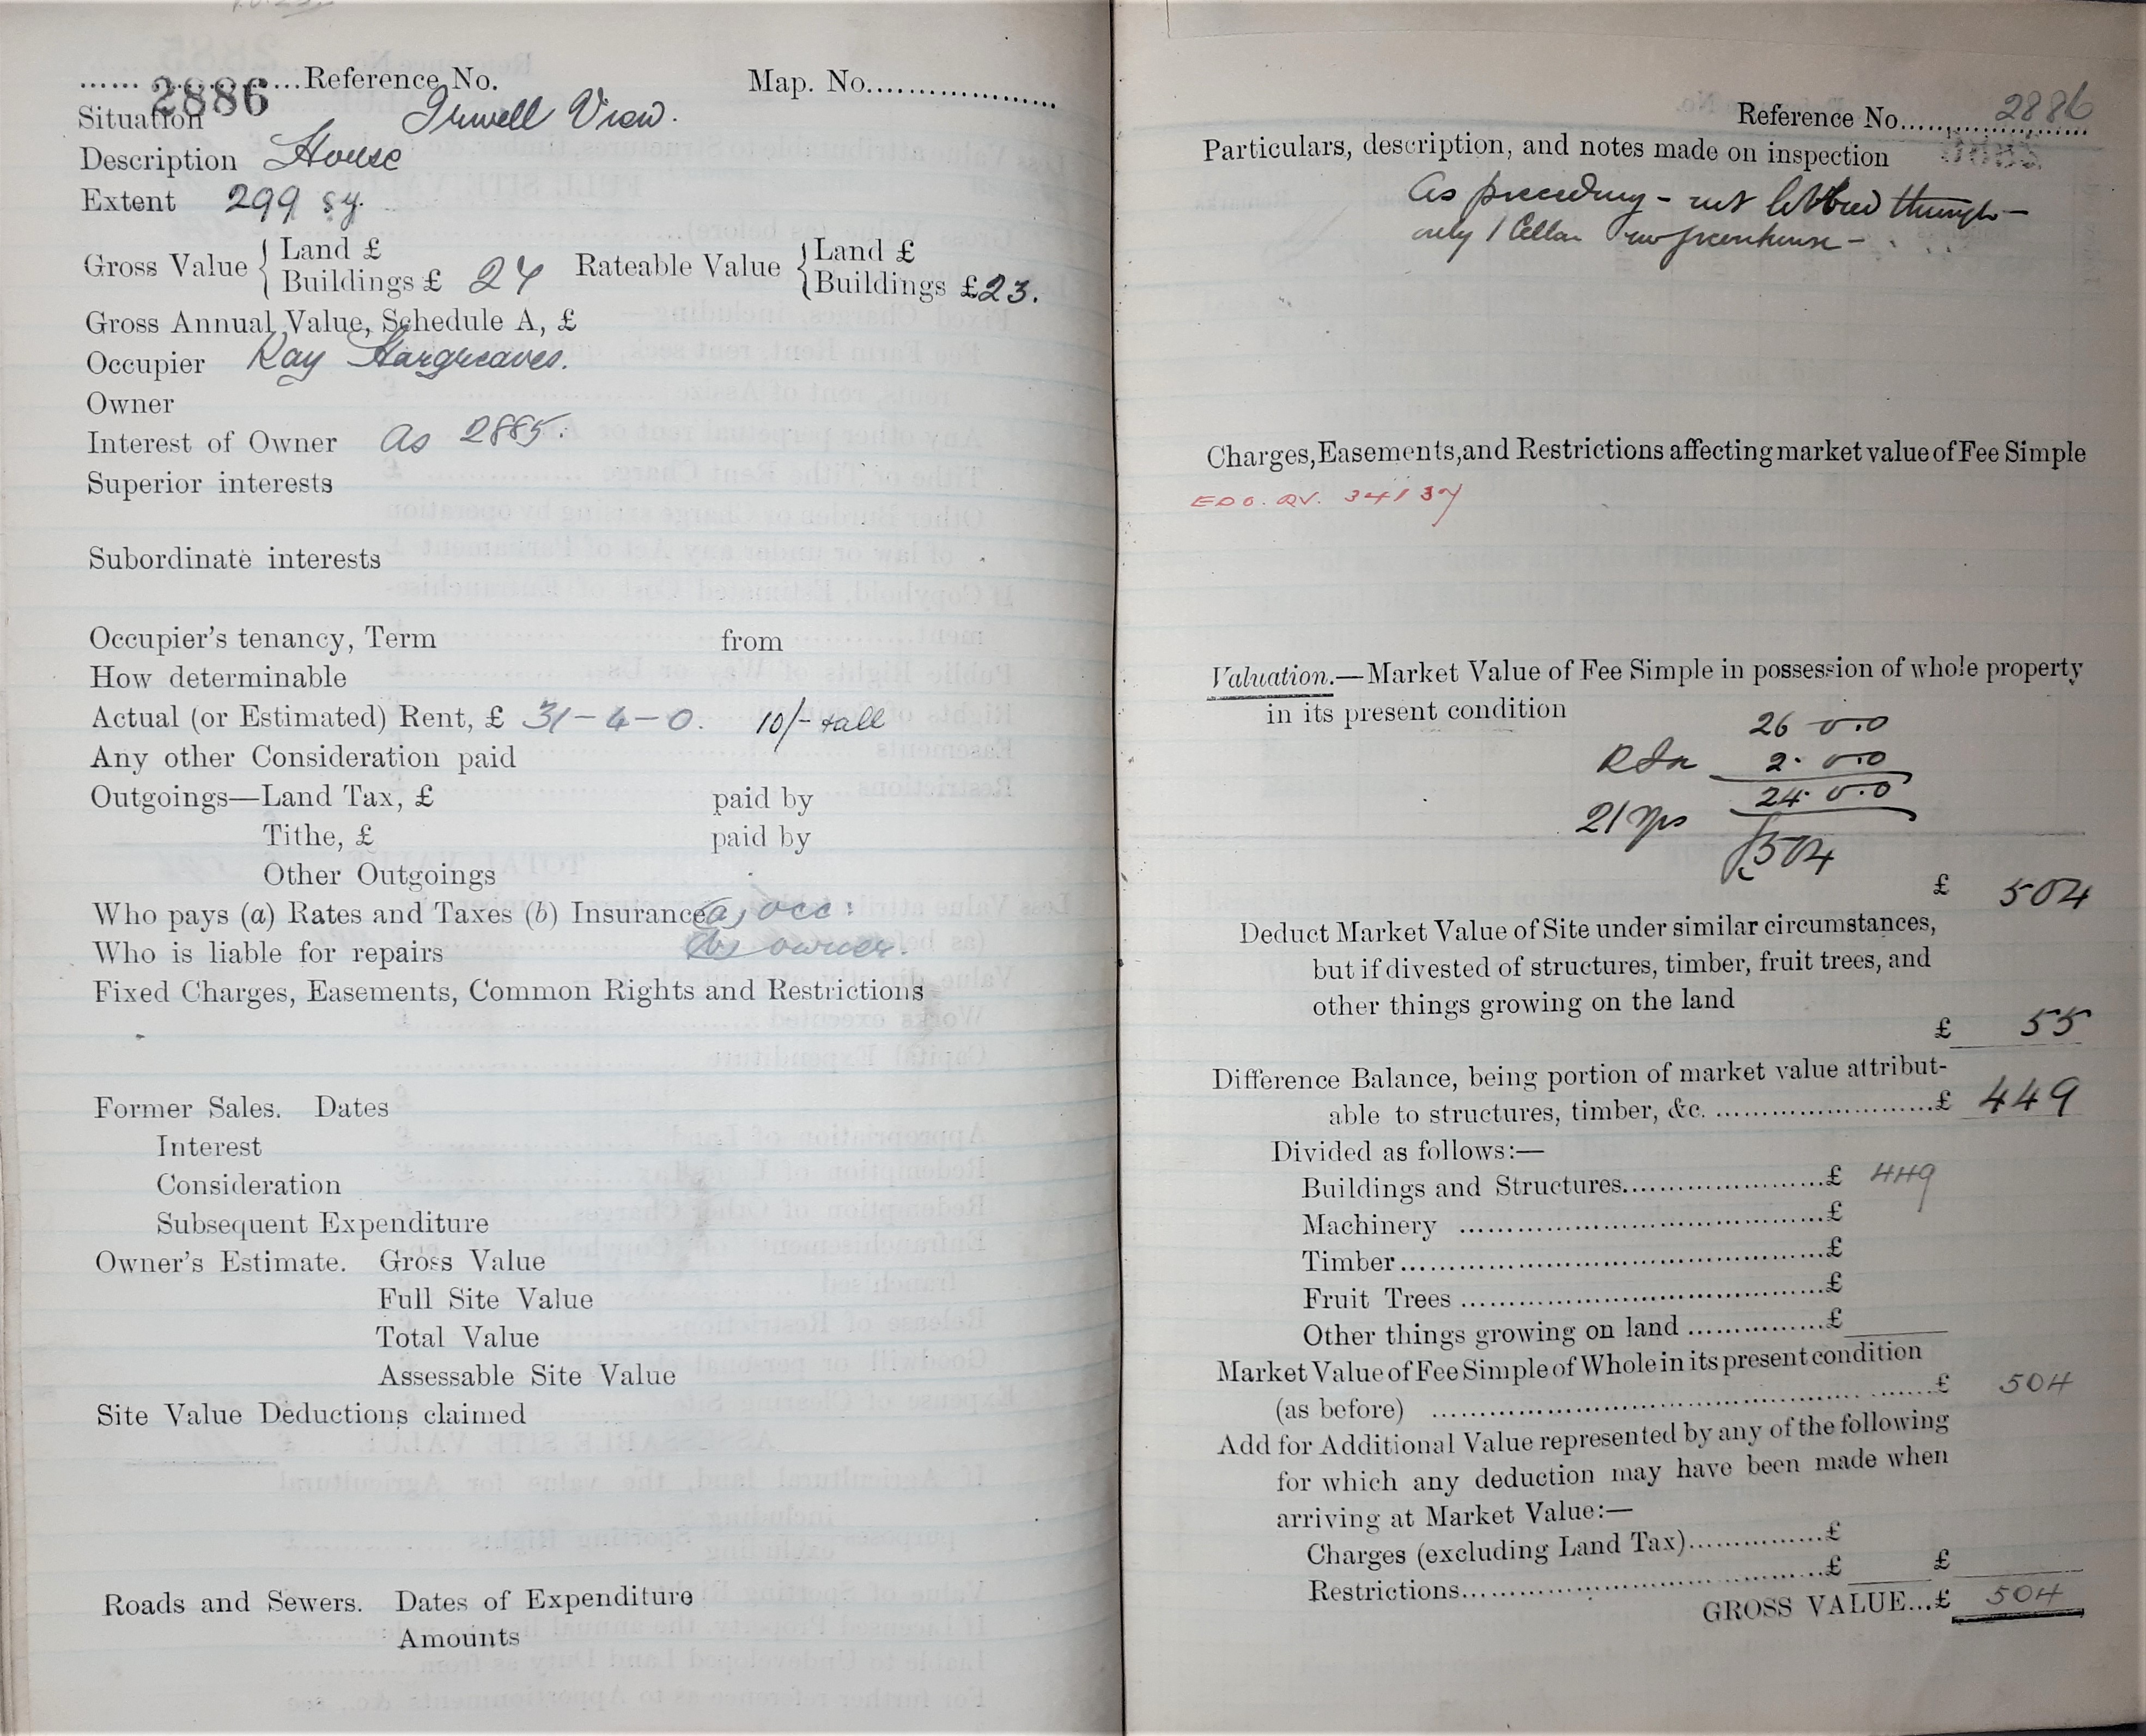 2886 Reference No. Map. No.
Situation Irwell View.
Description House
Extent 299 sy.
Gross Value { Land £
Buildings £ 27 Rateable Value { Land £
Buildings £23.
Gross Annual Value, Schedule A, £
Occupier Kay Hargreaves.
Owner
Interest of Owner As 2885.
Superior interests
Subordinate interests
Occupier's tenancy, Term from
How determinable
Actual (or Estimated) Rent, £ 31-4-0. 10/- + all
Any other Consideration paid
Outgoings—Land Tax, £ paid by
Tithe, £ paid by
Other Outgoings
Who pays (a) Rates and Taxes (b) Insurance a, occ:
Who is liable for repairs (b) owner.
Fixed Charges, Easements, Common Rights and Restrictions
Former Sales. Dates
Interest
Consideration
Subsequent Expenditure
Owner's Estimate. Gross Value
Full Site Value
Total Value
Assessable Site Value
Site Value Deductions claimed
Roads and Sewers. Dates of Expenditure
Amounts
Reference No. 2886
Particulars, description, and notes made on inspection
As preceding - not lobbied through -
only 1 Cellar no greenhouse -
Charges, Easements, and Restrictions affecting market value of Fee Simple
34/37
Valuation.—Market Value of Fee Simple in possession of whole property
in its present condition
26 0.0
2. 0.0
24. 0.0
21 yps
£504
£ 504
Deduct Market Value of Site under similar circumstances,
but if divested of structures, timber, fruit trees, and
other things growing on the land
£ 55
Difference Balance, being portion of market value attribut-
able to structures, timber, &c. £ 449
Divided as follows:—
Buildings and Structures £ 449
Machinery £
Timber £
Fruit Trees £
Other things growing on land £
Market Value of Fee Simple of Whole in its present condition
(as before) £ 504
Add for Additional Value represented by any of the following
for which any deduction may have been made when
arriving at Market Value:—
Charges (excluding Land Tax) £
Restrictions £ £
GROSS VALUE...£ 504